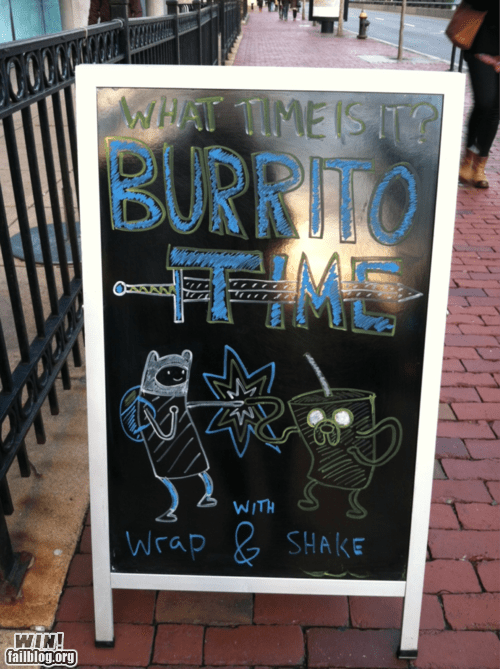 WHAT TIME IS IT?
BURRITO
TIME
WITH
Wrap & SHAKE
WIN!
failblog.org